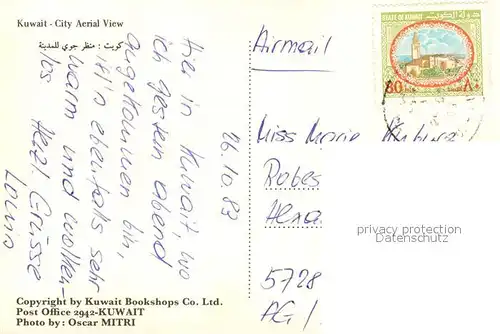 Kuwait - City Aerial View
كويت : منظر جوي للمدينة
26.10.83
Hie in Kuwait, wo
ich gestern abend
angekommen bin,
ist's ebenfalls sehr
warm und wolken-
los Herzl. Grüsse
Louis
Airmail
STATE OF KUWAIT
دولة الكويت
80
٨٠
Miss Marie
Robes
Alexa
5728
AG /
privacy protection
Datenschutz
Copyright by Kuwait Bookshops Co. Ltd.
Post Office 2942-KUWAIT
Photo by: Oscar MITRI